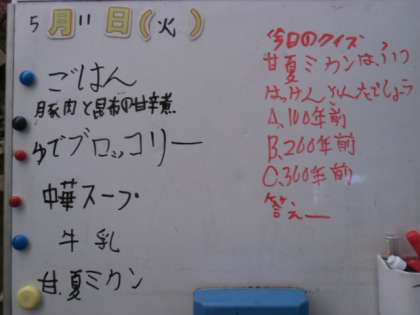 5月11日(火)
ごはん
豚肉と昆布の甘辛煮
ゆでブロッコリー
中華スープ
牛乳
甘夏ミカン
今日のクイズ
甘夏ミカンは、いつ
はっけんされたでしょう
A.100年前
B.200年前
C.300年前
答えー